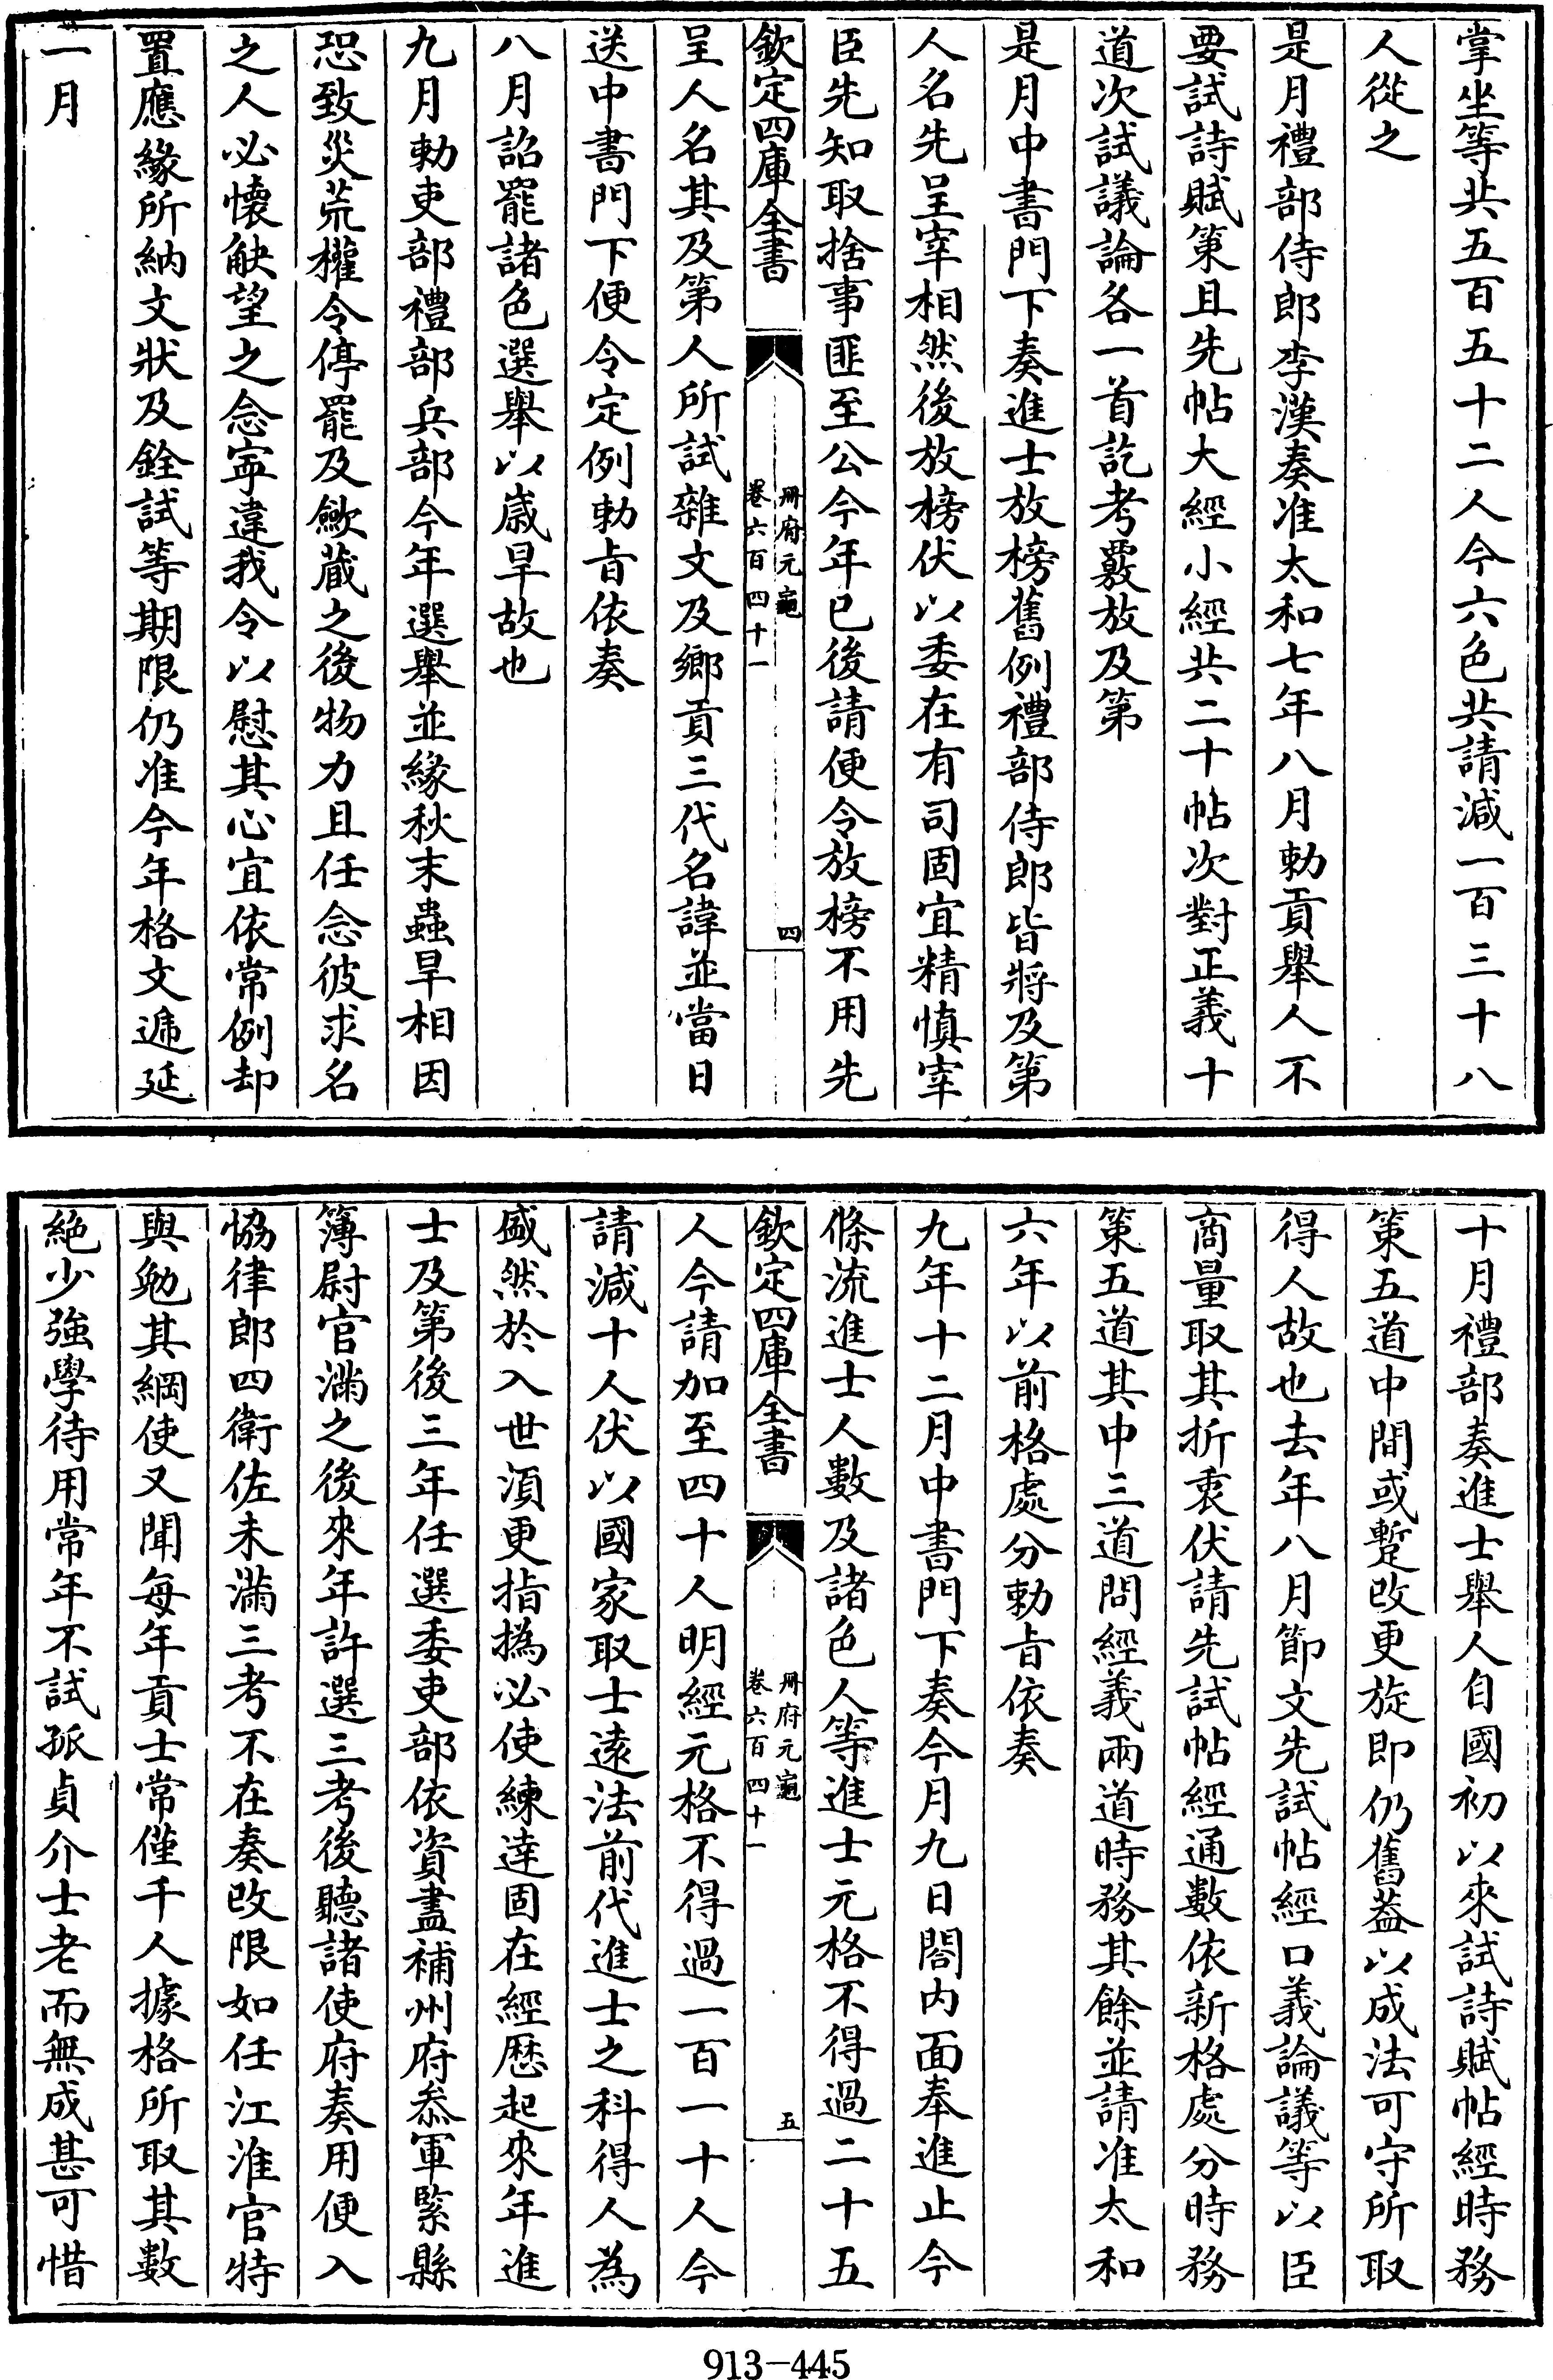 掌坐等共五百五十二人今六色共請減一百三十八
人從之
是月禮部侍郎李漢奏准太和七年八月勅貢舉人不
要試詩賦策且先帖大經小經共二十帖次對正義十
道次試議論各一首訖考覈放及第
是月中書門下奏進士放榜舊例禮部侍郎皆將及第
人名先呈宰相然後放榜伏以委在有司固宜精慎宰
臣先知取捨事匪至公今年已後請便令放榜不用先
欽定四庫全書
冊府元龜
卷六百四十一
四
呈人名其及第人所試雜文及鄉貢三代名諱並當日
送中書門下便令定例勅旨依奏
八月詔罷諸色選舉以歲旱故也
九月勅吏部禮部兵部今年選舉並緣秋末蟲旱相因
恐致災荒權令停罷及斂藏之後物力且任念彼求名
之人必懷觖望之念寧違我令以慰其心宜依常例却
置應緣所納文狀及銓試等期限仍准今年格文遞延
一月
十月禮部奏進士舉人自國初以來試詩賦帖經時務
策五道中間或蹔改更旋即仍舊蓋以成法可守所取
得人故也去年八月節文先試帖經口義論議等以臣
商量取其折衷伏請先試帖經通數依新格處分時務
策五道其中三道問經義兩道時務其餘並請准太和
六年以前格處分勅旨依奏
九年十二月中書門下奏今月九日閤內面奉進止今
條流進士人數及諸色人等進士元格不得過二十五
欽定四庫全書
冊府元龜
卷六百四十一
五
人今請加至四十人明經元格不得過一百一十人今
請減十人伏以國家取士遠法前代進士之科得人為
盛然於入世須更指撝必使練達固在經歷起來年進
士及第後三年任選委吏部依資盡補州府叅軍緊縣
簿尉官滿之後來年許選三考後聽諸使府奏用便入
協律郎四衛佐未滿三考不在奏改限如任江淮官特
與勉其綱使又聞每年貢士常僅千人據格所取其數
絶少強學待用常年不試孤貞介士老而無成甚可惜
913-445